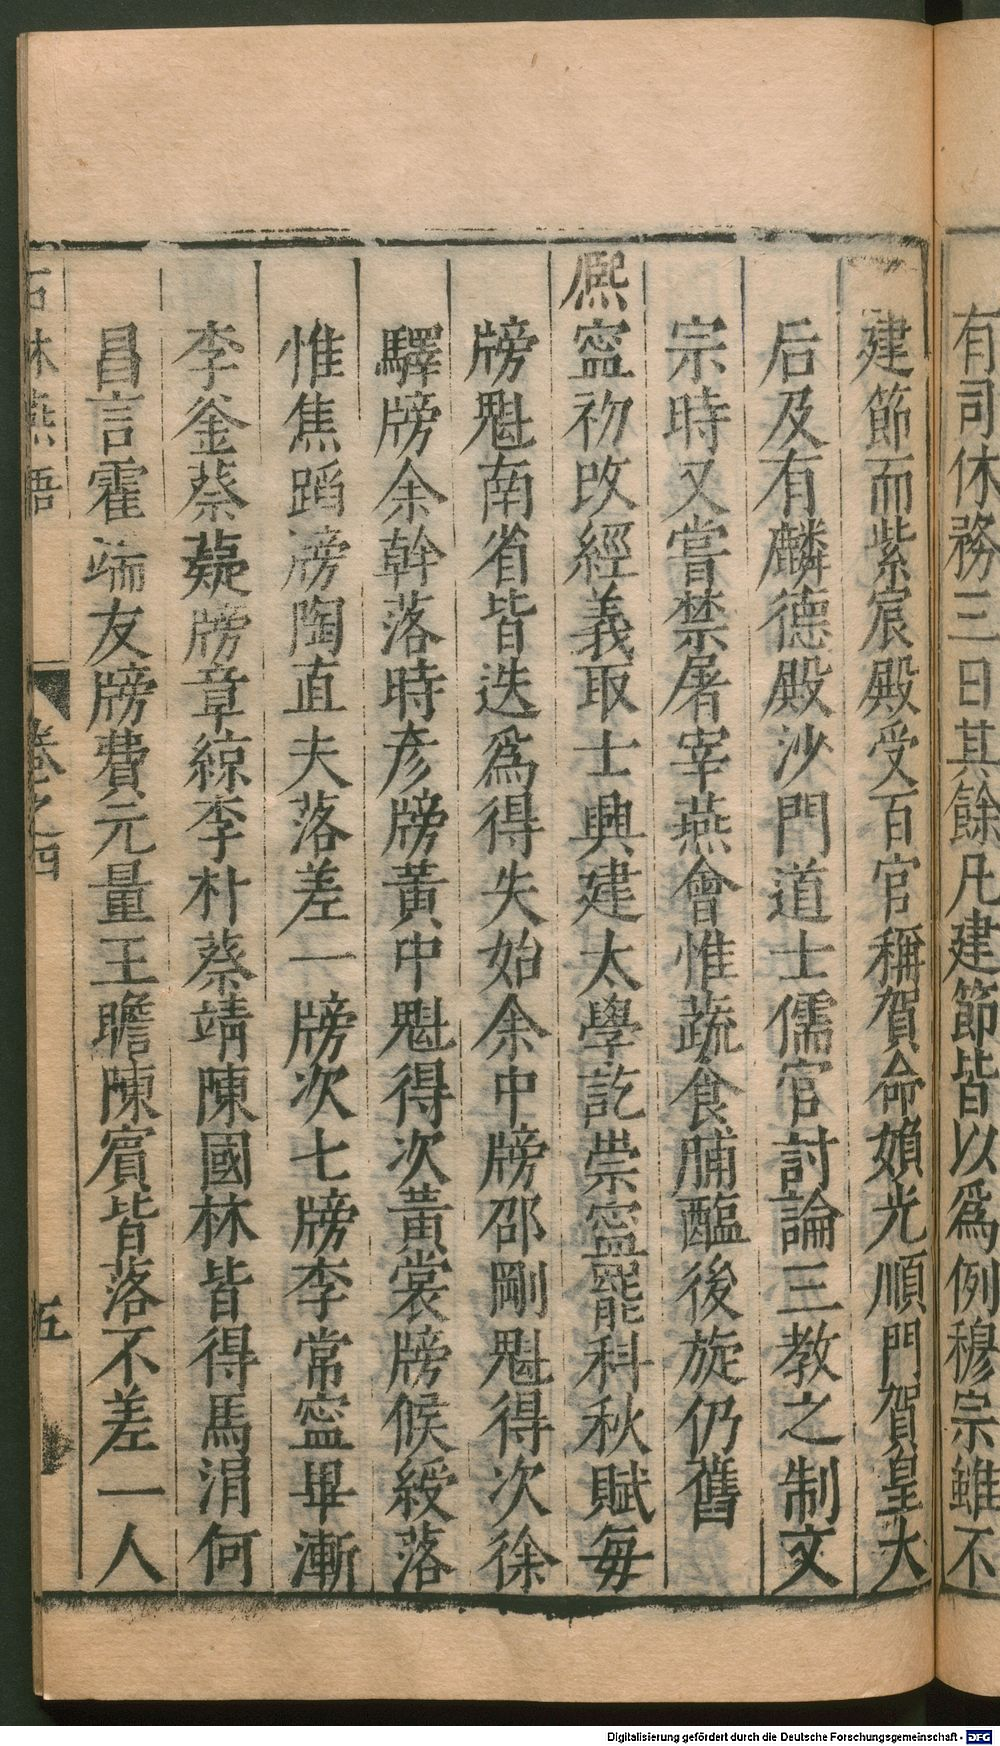 有司休務三日其餘凡建節皆以爲例穆宗雖不
建節而紫宸殿受百官稱賀命婦光順門賀皇太
后及有麟德殿沙門道士儒官討論三教之制文
宗時又嘗禁屠宰燕會惟蔬食脯醢後旋仍舊
熈寧初改經義取士興建太學訖崇寧罷科秋賦每
牓魁南省皆迭爲得失始余中牓邵剛魁得次徐
驛牓余幹落時彦牓黃中魁得次黃裳牓候綬落
惟焦蹈牓陶直夫落差一牓次七牓李常寧畢漸
李釜蔡薿牓章綜李朴蔡靖陳國林皆得馬涓何
昌言霍端友牓費元量王瞻陳賓皆落不差一人
石林燕語
卷之四
五
Digitalisierung gefördert durch die Deutsche Forschungsgemeinschaft - DFG